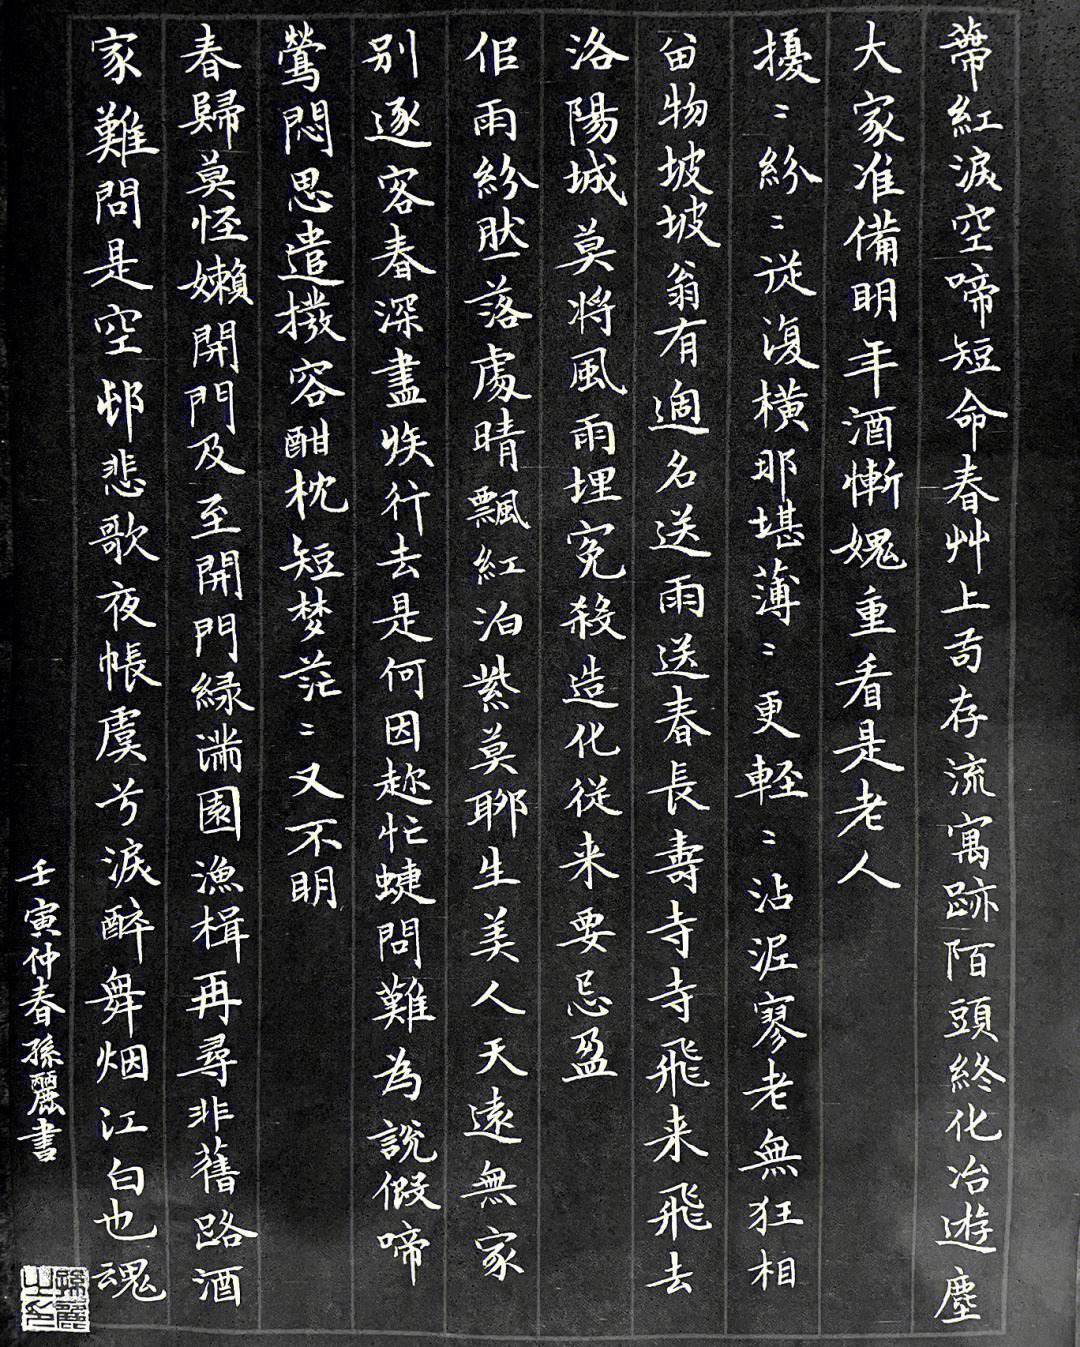 蒂紅淚空啼短命春艸上苟存流寓跡陌頭終化冶遊塵
大家准備明年酒慚媿重看是老人
擾〻紛〻從復橫那堪薄〻更輕〻沾泥寥老無狂相
留物坡坡翁有過名送雨送春長壽寺寺飛来飛去
洛陽城莫將風雨埋冤殺造化從来要忌盈
隹雨紛肰落處晴飄紅泊紫莫聊生美人天遠無家
别逐客春深盡族行去是何因趂忙蜨問難為說假啼
鶯悶思遣撥容酣枕短梦茫〻又不明
春歸莫怪嬾開門及至開門綠滿園漁楫再尋非舊路酒
家難問是空邨悲歌夜帳虞兮淚醉舞烟江白也魂
壬寅仲春孫麗書